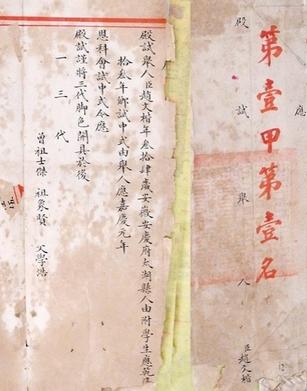 第壹甲第壹名
應
臣趙文楷
殿試舉人
殿試舉人臣趙文楷年叁拾肆歲安徽安慶府太湖縣人由附學生應乾
拾叁年鄉試中式由舉人應嘉慶元年
恩科會試中式今應
殿試謹將三代脚色開具於後
一三代
曾祖士傑 祖象賢 父學浩